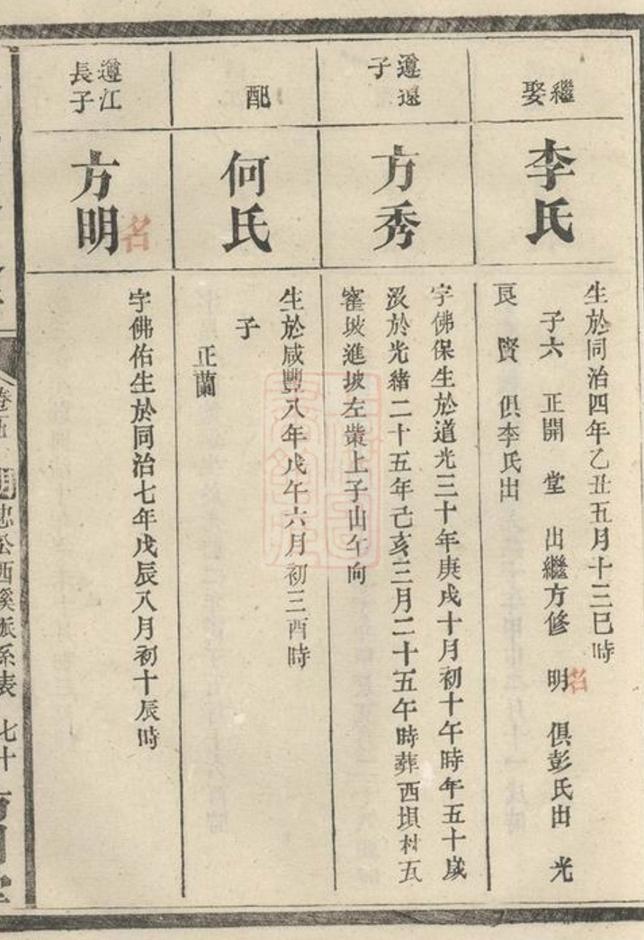 繼娶
李氏
生於同治四年乙丑五月十三巳時
子六　正開　堂　出繼方修　明　俱彭氏出　光
艮　賢　俱李氏出
名
遵遠子
方秀
字佛保生於道光三十年庚戌十月初十午時年五十歲
沒於光緒二十五年己亥三月二十五午時葬西垻村瓦
窰坡進坡左業上子山午向
配
何氏
生於咸豐八年戊午六月初三酉時
子
正蘭
遵江長子
方明
名
字佛佑生於同治七年戊辰八月初十辰時
卷五
忠公西溪派系表　七十